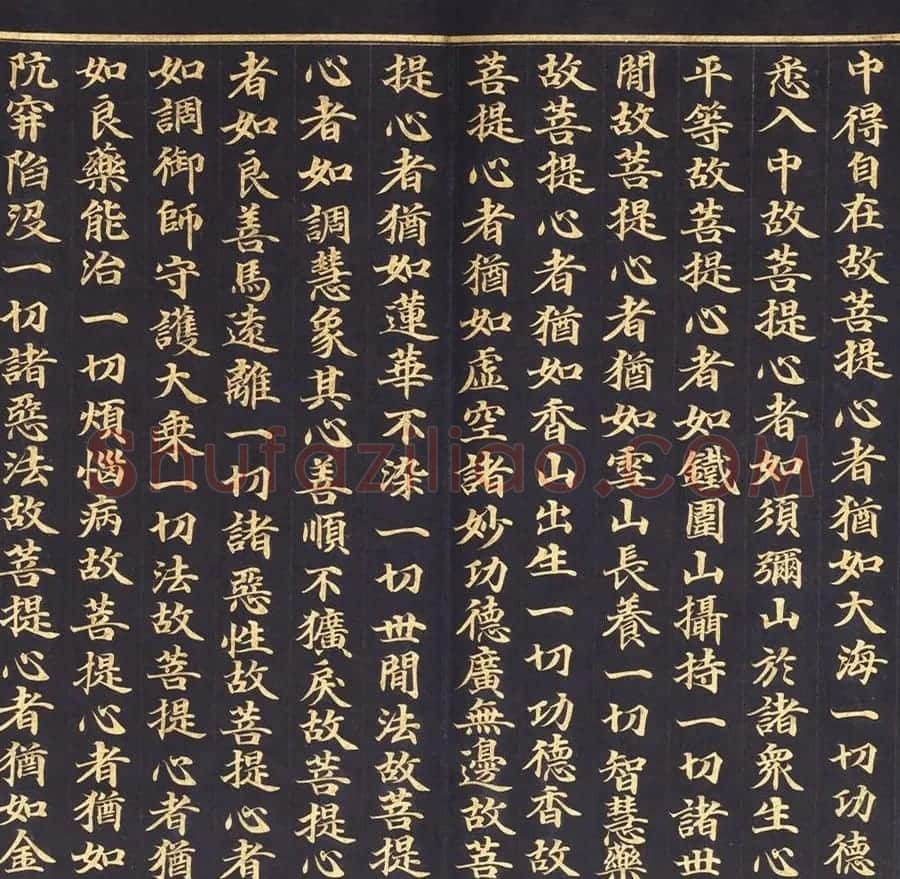 中得自在故菩提心者猶如大海一切功德
悉入中故菩提心者如須彌山於諸衆生心
平等故菩提心者如鐵圍山攝持一切諸世
閒故菩提心者猶如雪山長養一切智慧藥
故菩提心者猶如香山出生一切功德香故
菩提心者猶如虛空諸妙功德廣無邊故菩
提心者猶如蓮華不染一切世間法故菩提
心者如調慧象其心善順不獷戾故菩提心
者如良善馬遠離一切諸惡性故菩提心者
如調御師守護大乗一切法故菩提心者猶
如良藥能治一切煩惱病故菩提心者猶如
阬穽陷沒一切諸惡法故菩提心者猶如金
Shufaziliao.COM